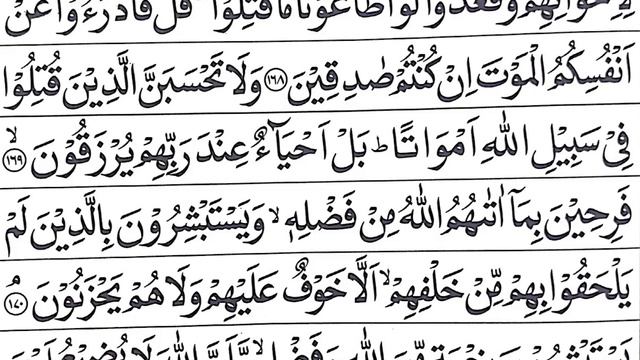 لِاِخْوَانِهِمْ وَقَعَدُوْا لَوْ اَطَاعُوْنَا مَا قُتِلُوْا ؕ قُلْ فَادْرَءُوْا عَنْ
اَنْفُسِكُمُ الْمَوْتَ اِنْ كُنْتُمْ صٰدِقِيْنَ ﴿۱۶۸﴾ وَلَا تَحْسَبَنَّ الَّذِيْنَ قُتِلُوْا
فِيْ سَبِيْلِ اللّٰهِ اَمْوَاتًا ؕ بَلْ اَحْيَآءٌ عِنْدَ رَبِّهِمْ يُرْزَقُوْنَ ﴿۱۶۹﴾ ۙ
فَرِحِيْنَ بِمَاۤ اٰتٰىهُمُ اللّٰهُ مِنْ فَضْلِهٖ ۙ وَيَسْتَبْشِرُوْنَ بِالَّذِيْنَ لَمْ
يَلْحَقُوْا بِهِمْ مِّنْ خَلْفِهِمْ ۙ اَلَّا خَوْفٌ عَلَيْهِمْ وَلَا هُمْ يَحْزَنُوْنَ ﴿۱۷۰﴾ ۘ